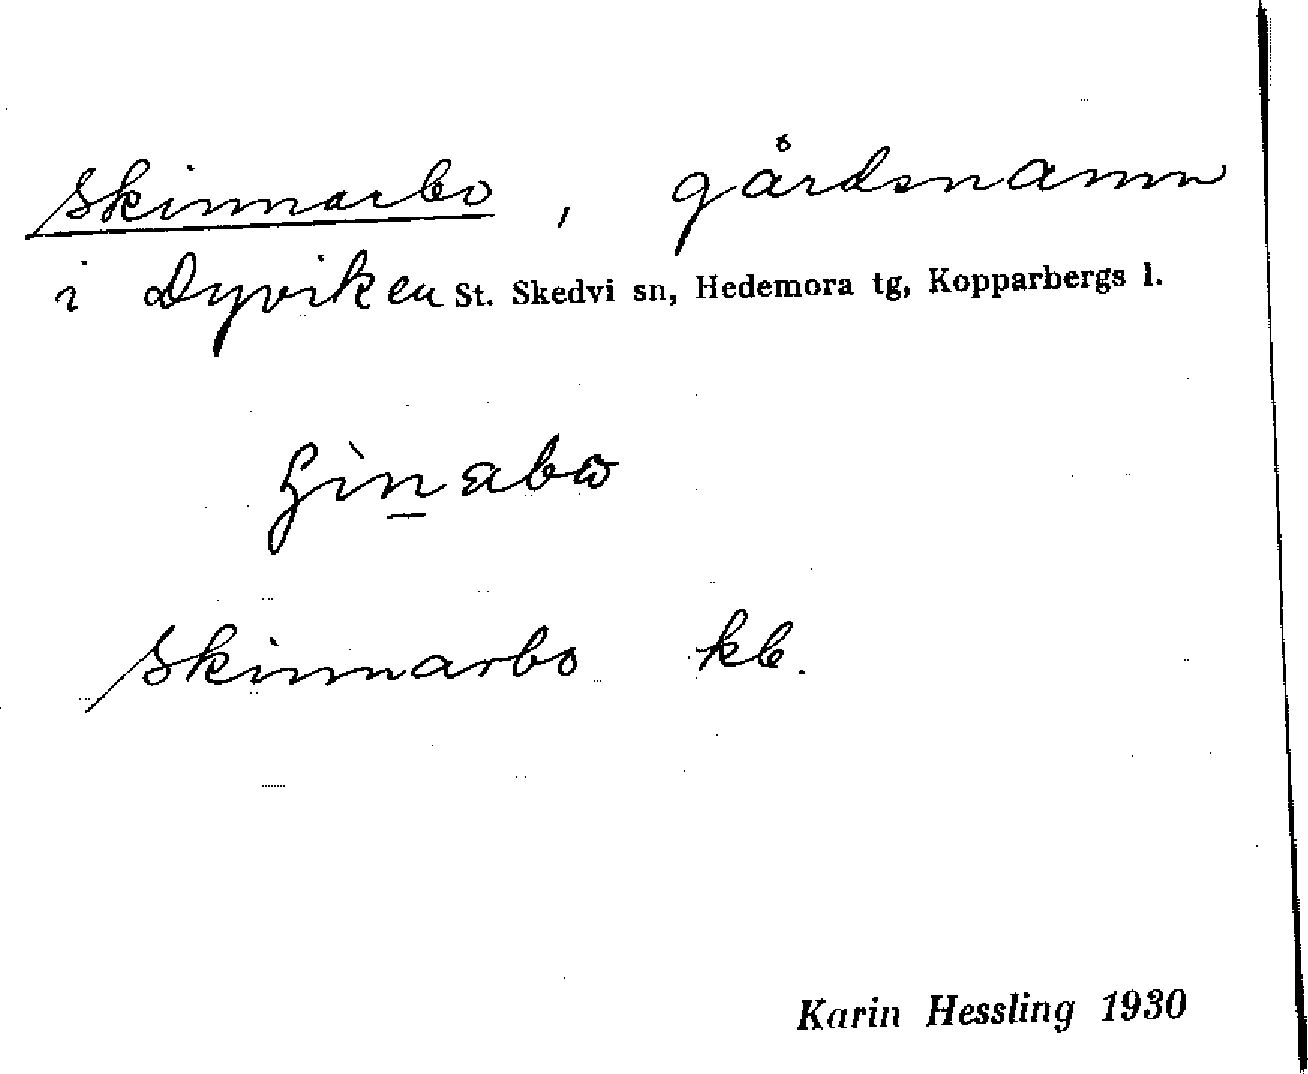 Skinnarbo, gårdsnamn
i Dyviken St. Skedvi sn, Hedemora tg, Kopparbergs l.
Skinnarbo kb.
Karin Hessling 1930